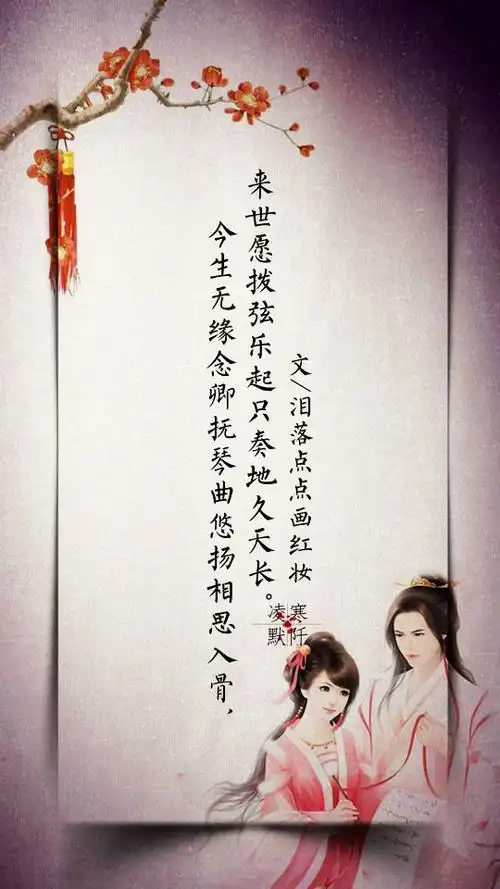 今生无缘念卿抚琴曲悠扬相思入骨，
来世愿拨弦乐起只奏地久天长。
文/泪落点点画红妆
凌寒
默阡